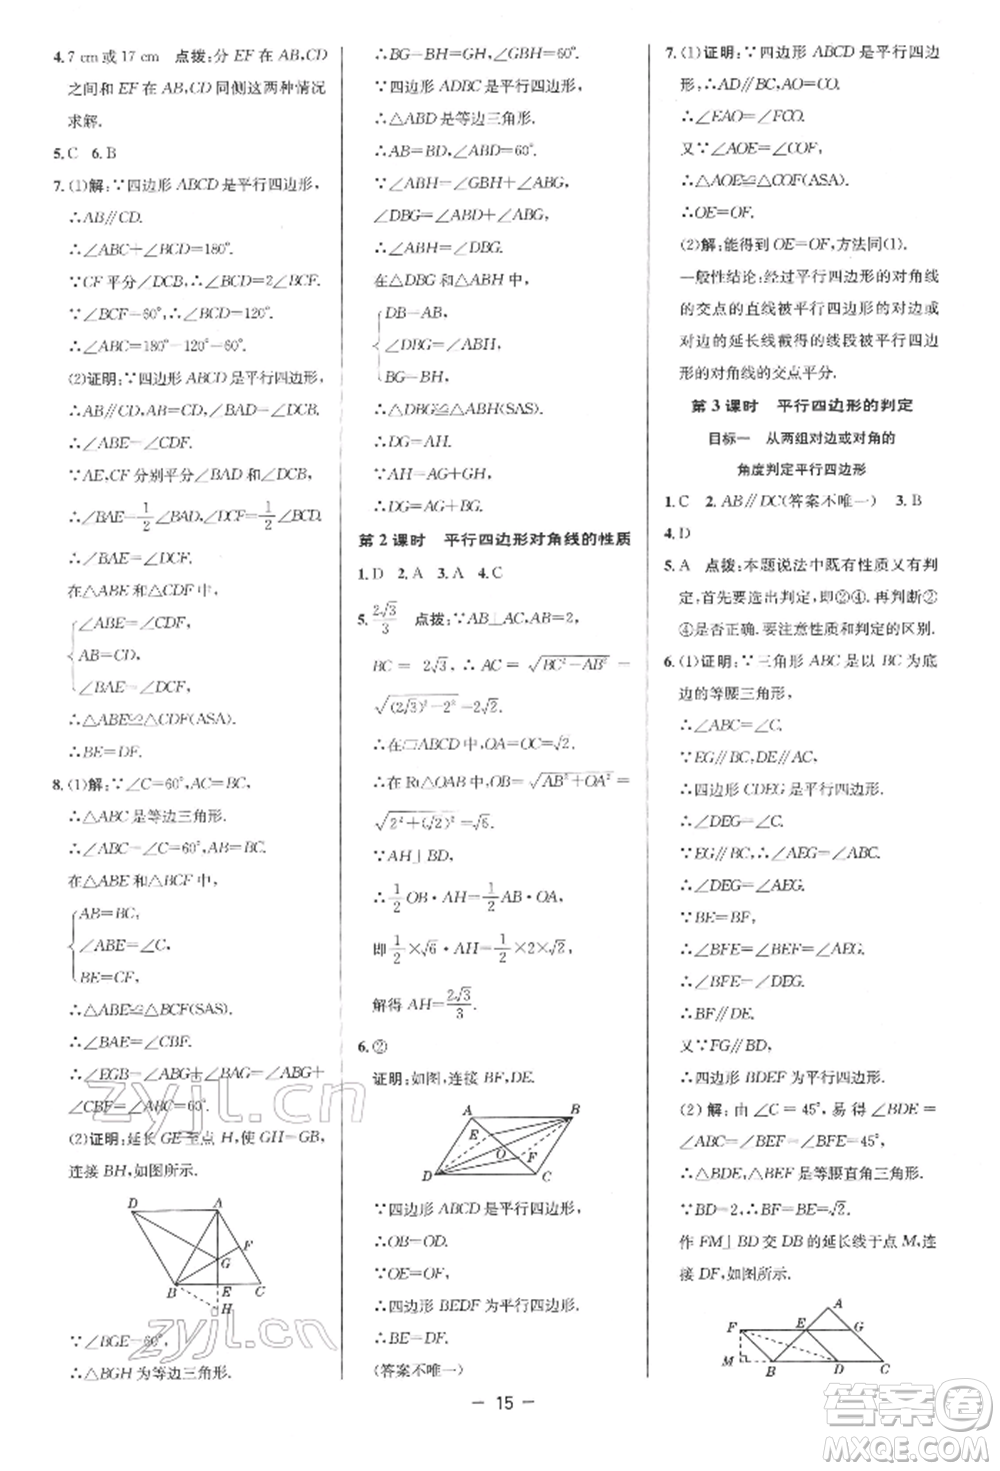 4.7 cm或17 cm 点拨:分 EF 在 AB,CD
之间和 EF 在 AB,CD 同侧这两种情况
求解.
5.C 6.B
7.(1)解:∵四边形 ABCD 是平行四边形,
∴AB∥CD.
∴∠ABC+∠BCD=180°.
∵CF 平分∠DCB,∴∠BCD=2∠BCF.
∵∠BCF=60°,∴∠BCD=120°.
∴∠ABC=180°-120°=60°.
(2)证明:∵四边形 ABCD 是平行四边形,
∴AB∥CD,AB=CD,∠BAD=∠DCB.
∴∠ABE=∠CDF.
∵AE,CF 分别平分∠BAD 和∠DCB,
∴∠BAE=1/2∠BAD,∠DCF=1/2∠BCD.
∴∠BAE=∠DCF.
在△ABE 和△CDF 中,
∠ABE=∠CDF,
AB=CD,
∠BAE=∠DCF,
∴△ABE≌△CDF(ASA).
∴BE=DF.
8.(1)解:∵∠C=60°,AC=BC,
∴△ABC 是等边三角形.
∴∠ABC=∠C=60°,AB=BC.
在△ABE 和△BCF 中,
AB=BC,
∠ABE=∠C,
BE=CF,
∴△ABE≌△BCF(SAS).
∴∠BAE=∠CBF.
∴∠EGB=∠BAE+∠ABG=∠ABG+
∠CBF=∠ABC=60°.
(2)证明:延长 GE 至点 H,使 GH=GB,
连接 BH,如图所示.
D A
F
G
B E C
H
∵∠BGE=60°,
∴△BGH 为等边三角形.
∴BG=BH=GH,∠GBH=60°.
∵四边形 ADBC 是平行四边形,
∴△ABD 是等边三角形.
∴AB=BD,∠ABD=60°.
∵∠ABH=∠GBH+∠ABG,
∠DBG=∠ABD+∠ABG,
∴∠ABH=∠DBG.
在△DBG 和△ABH 中,
DB=AB,
∠DBG=∠ABH,
BG=BH,
∴△DBG≌△ABH(SAS).
∴DG=AH.
∵AH=AG+GH,
∴DG=AG+BG.
第2课时 平行四边形对角线的性质
1.D 2.A 3.A 4.C
5.2√3/3 点拨:∵AB⊥AC,AB=2,
BC=2√3,∴AC=√(BC²-AB²)=
√((2√3)²-2²)=2√2.
∴在▱ABCD 中,OA=OC=√2.
∴在 Rt△OAB 中,OB=√(AB²+OA²)=
√(2²+(√2)²)=√6.
∵AH⊥BD,
∴1/2 OB·AH=1/2 AB·OA,
即1/2×√6·AH=1/2×2×√2,
解得 AH=2√3/3.
6.②
证明:如图,连接 BF,DE.
A B
E
O F
D C
∵四边形 ABCD 是平行四边形,
∴OB=OD.
∵OE=OF,
∴四边形 BEDF 是平行四边形.
∴BE=DF.
(答案不唯一)
7.(1)证明:∵四边形 ABCD 是平行四边
形,∴AD∥BC,AO=CO.
∴∠EAO=∠FCO.
又∵∠AOE=∠COF,
∴△AOE≌△COF(ASA).
∴OE=OF.
(2)解:能得到 OE=OF,方法同(1).
一般性结论:经过平行四边形的对角线
的交点的直线被平行四边形的对边或
对边的延长线截得的线段被平行四边
形的对角线的交点平分.
第3课时 平行四边形的判定
目标一 从两组对边或对角的
角度判定平行四边形
1.C 2.AB∥DC(答案不唯一) 3.B
4.D
5.A 点拨:本题说法中既有性质又有判
定,首先要选出判定,即②④.再判断②
④是否正确.要注意性质和判定的区别.
6.(1)证明:∵三角形 ABC 是以 BC 为底
边的等腰三角形,
∴∠ABC=∠C.
∵EG∥BC,DE∥AC,
∴四边形 CDEG 是平行四边形.
∴∠DEG=∠C.
∵EG∥BC,∴∠ABC=∠AEG.
∴∠AEG=∠DEG.
∵BE=BF,
∴∠BFE=∠BEF=∠AEG.
∴∠BFE=∠DEG.
∴BF∥DE.
又∵FG∥BD,
∴四边形 BDEF 为平行四边形.
(2)解:由∠C=45°,易得∠BDE=
∠ABC=∠BEF=∠BFE=45°.
∴△BDE,△BEF 是等腰直角三角形.
∵BD=2,∴BF=BE=√2.
作 FM⊥BD 交 DB 的延长线于点 M,连
接 DF,如图所示.
A
F E G
M B D C
— 15 —
zyjl.cn
zyjl.cn
答案圈
MXQE.COM